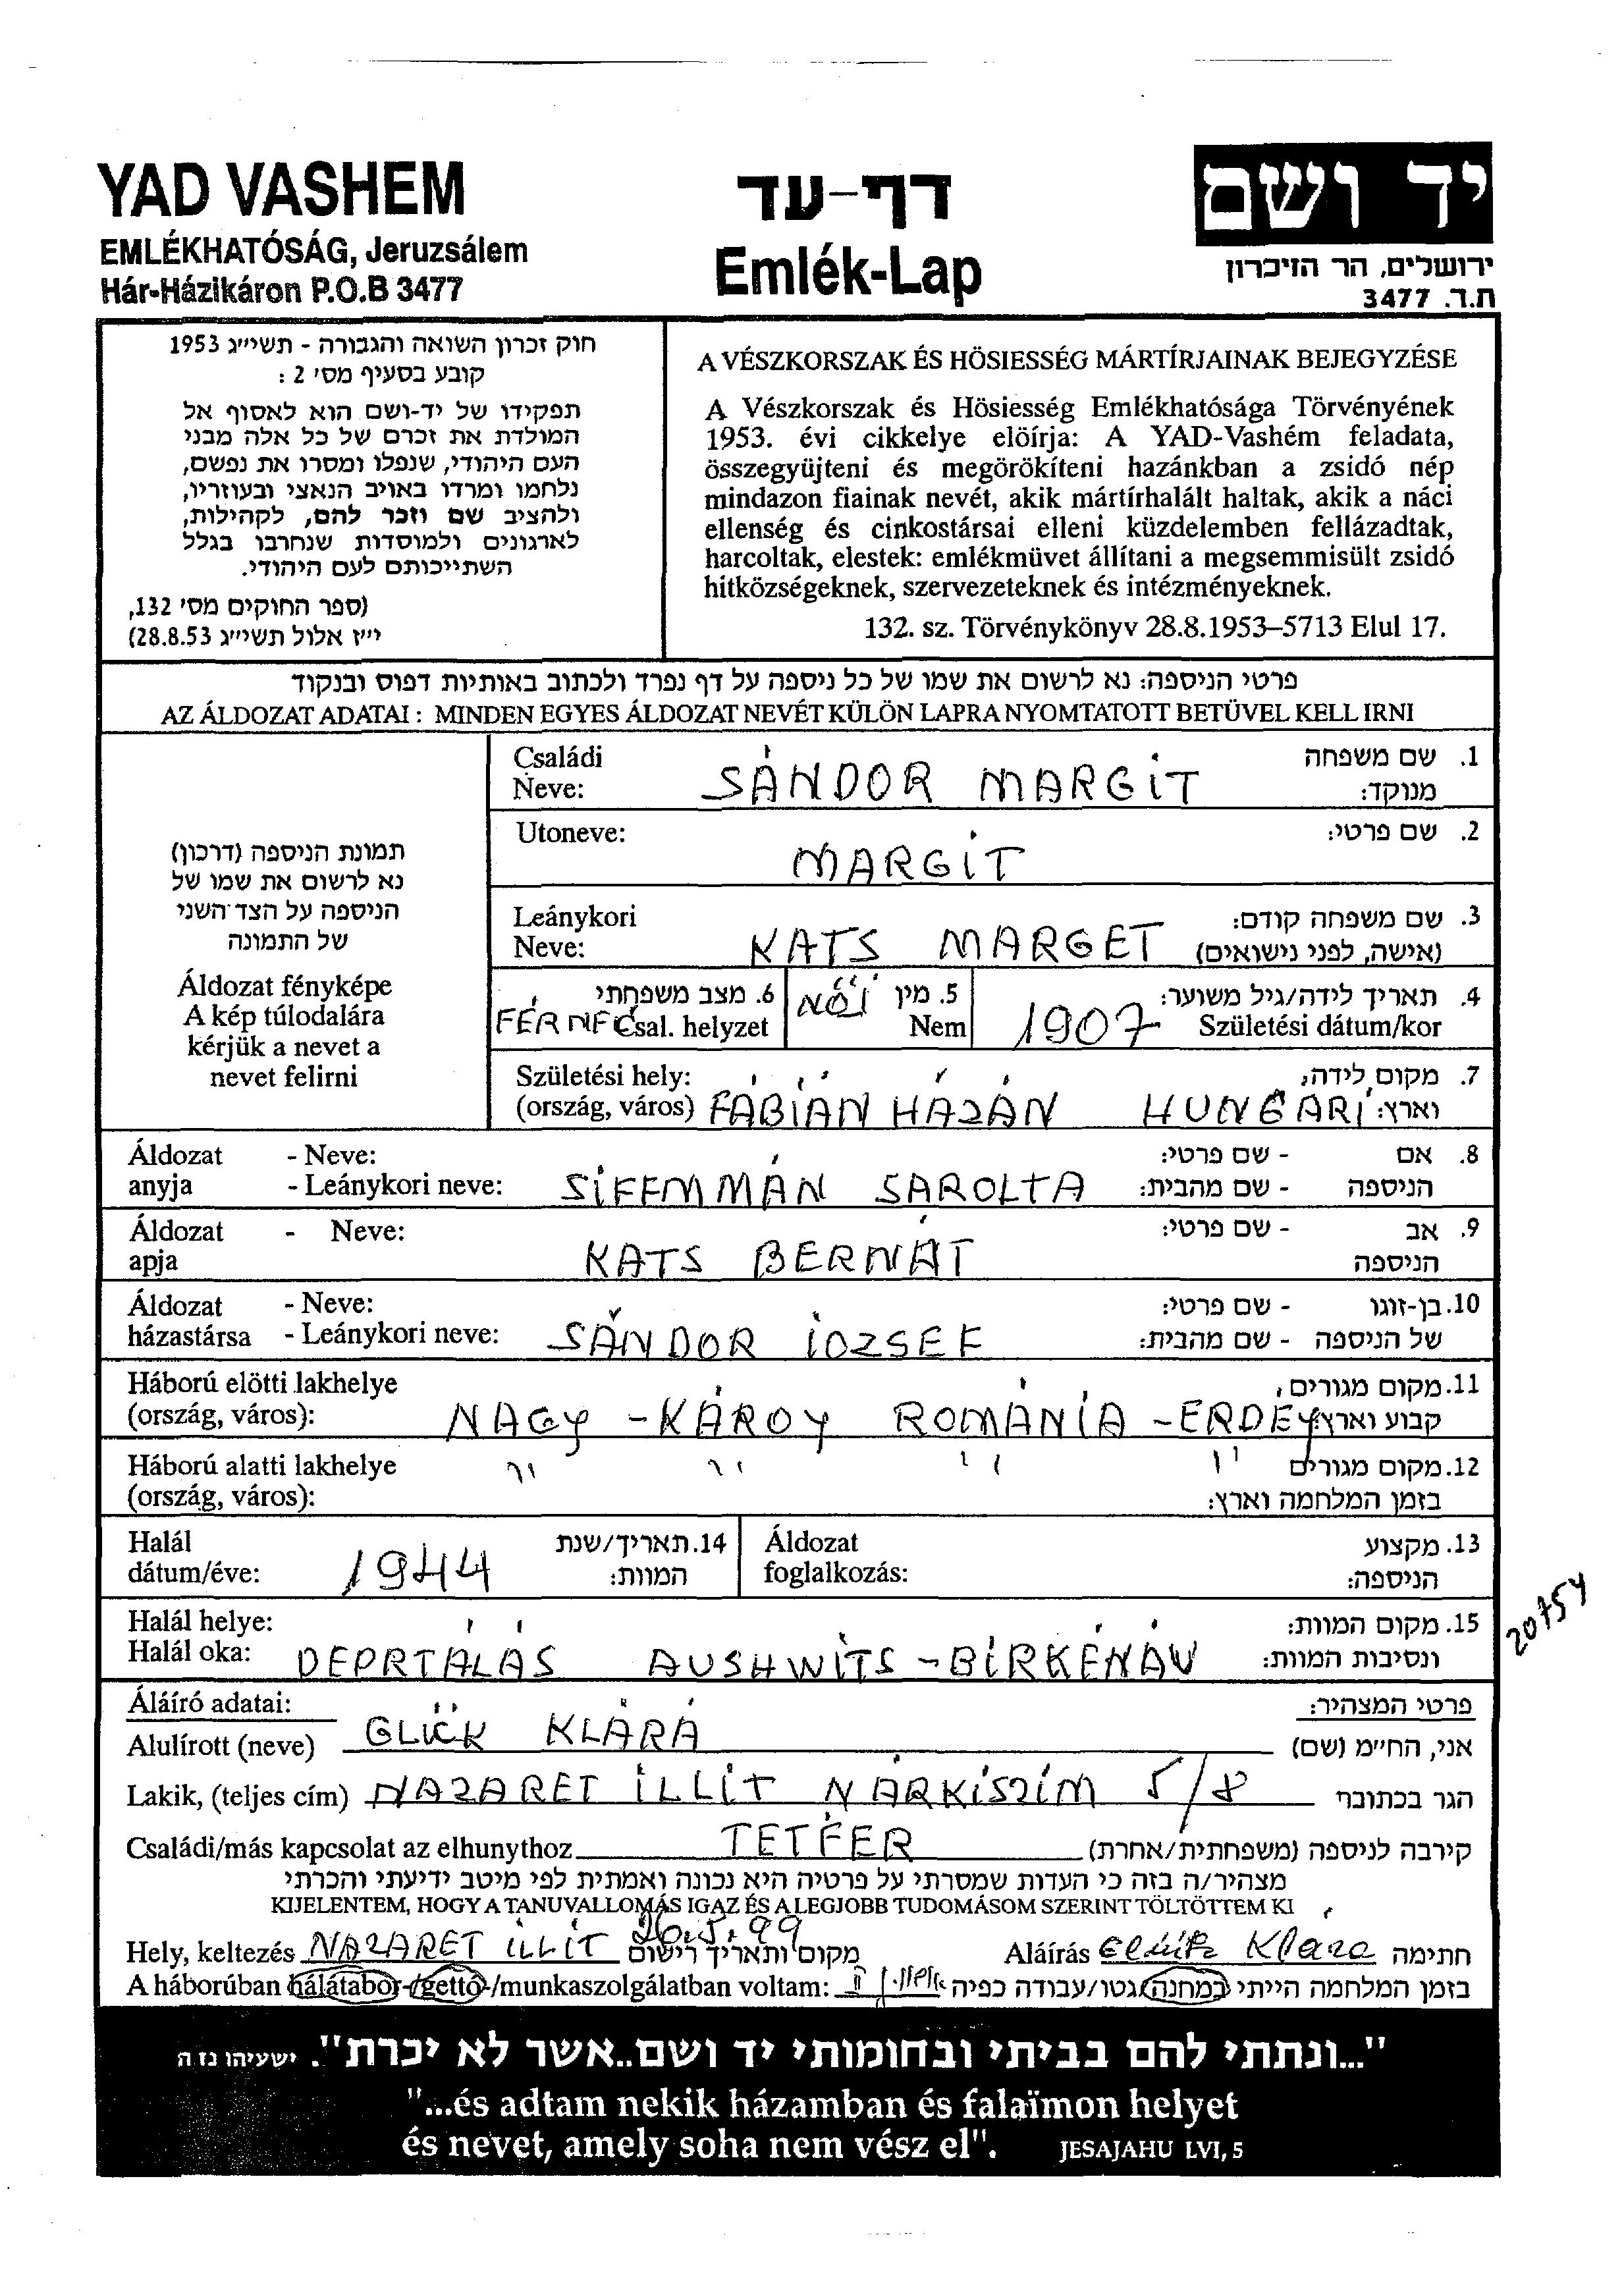 YAD VASHEM
EMLÉKHATÓSÁG, Jeruzsálem
Hár-Házikáron P.O.B 3477
דף-עד
Emlék-Lap
יד ושם
ירושלים, הר הזיכרון
ת.ד. 3477
חוק זכרון השואה והגבורה - תשי״ג 1953
קובע בסעיף מס׳ 2 :
תפקידו של יד-ושם הוא לאסוף אל
המולדת את זכרם של כל אלה מבני
העם היהודי, שנפלו ומסרו את נפשם,
נלחמו ומרדו באויב הנאצי ובעוזריו,
ולהציב שם וזכר להם, לקהילות,
לארגונים ולמוסדות שנחרבו בגלל
השתייכותם לעם היהודי.
(ספר החוקים מס׳ 132,
י״ז אלול תשי״ג 28.8.53)
A VÉSZKORSZAK ÉS HÖSIESSÉG MÁRTÍRJAINAK BEJEGYZÉSE
A Vészkorszak és Hösiesség Emlékhatósága Törvényének
1953. évi cikkelye elöírja: A YAD-Vashém feladata,
összegyüjteni és megörökíteni hazánkban a zsidó nép
mindazon fiainak nevét, akik mártírhalált haltak, akik a náci
ellenség és cinkostársai elleni küzdelemben fellázadtak,
harcoltak, elestek: emlékmüvet állítani a megsemmisült zsidó
hitközségeknek, szervezeteknek és intézményeknek.
132. sz. Törvénykönyv 28.8.1953–5713 Elul 17.
פרטי הניספה: נא לרשום את שמו של כל ניספה על דף נפרד ולכתוב באותיות דפוס ובנקוד
AZ ÁLDOZAT ADATAI : MINDEN EGYES ÁLDOZAT NEVÉT KÜLÖN LAPRA NYOMTATOTT BETÜVEL KELL IRNI
תמונת הניספה (דרכון)
נא לרשום את שמו של
הניספה על הצד השני
של התמונה
Áldozat fényképe
A kép túlodalára
kérjük a nevet a
nevet felirni
Családi Neve: SÁNDOR MARGIT 1. שם משפחה מנוקד:
Utoneve: MARGIT 2. שם פרטי:
Leánykori Neve: KATS MARGET 3. שם משפחה קודם: (אישה, לפני נישואים)
6. מצב משפחתי Csal. helyzet 5. מין Nem NÖI 4. תאריך לידה/גיל משוער: Születési dátum/kor 1907
Születési hely: (ország, város) FÁBIÁN HÁZÁN HUNGÁRI 7. מקום לידה, וארץ:
Áldozat anyja - Neve: - Leánykori neve: SIFFMMÁN SAROLTA 8. אם הניספה - שם פרטי: - שם מהבית:
Áldozat apja - Neve: KATS BERNÁT 9. אב הניספה - שם פרטי:
Áldozat házastársa - Neve: - Leánykori neve: SÁNDOR IOZSEF 10. בן-זוגו של הניספה - שם פרטי: - שם מהבית:
Háború elötti lakhelye (ország, város): NAGY-KÁROY ROMÁNÍA-ERDEY 11. מקום מגורים, קבוע וארץ:
Háború alatti lakhelye (ország, város): " " " " 12. מקום מגורים בזמן המלחמה וארץ:
Halál dátum/éve: 1944 14. תאריך/שנת המוות: Áldozat foglalkozás: 13. מקצוע הניספה:
Halál helye: Halál oka: DEPRTÁLÁS AUSHWITS-BIRKÉNÁU 15. מקום המוות: ונסיבות המוות:
20754
Áláíró adatai: פרטי המצהיר:
Alulírott (neve) GLÜCK KLÁRÁ אני, הח״מ (שם)
Lakik, (teljes cím) NAZARET ILLIT NÁRKISZIM 5/8 הגר בכתובת
Családi/más kapcsolat az elhunythoz TETFÉR קירבה לניספה (משפחתית/אחרת)
מצהיר/ה בזה כי העדות שמסרתי על פרטיה היא נכונה ואמתית לפי מיטב ידיעתי והכרתי
KIJELENTEM, HOGY A TANUVALLOMÁS IGAZ ÉS A LEGJOBB TUDOMÁSOM SZERINT TÖLTÖTTEM KI
Hely, keltezés NAZARET ILLIT 26.5.99 מקום ותאריך רישום Aláírás Glück Klara חתימה
A háborúban hálátábor-/gettó-/munkaszolgálatban voltam: בזמן המלחמה הייתי במחנה/גטו/עבודה כפיה
"...ונתתי להם בביתי ובחומותי יד ושם..אשר לא יכרת". ישעיהו נז ה
"...és adtam nekik házamban és falaïmon helyet
és nevet, amely soha nem vész el". JESAJAHU LVI, 5